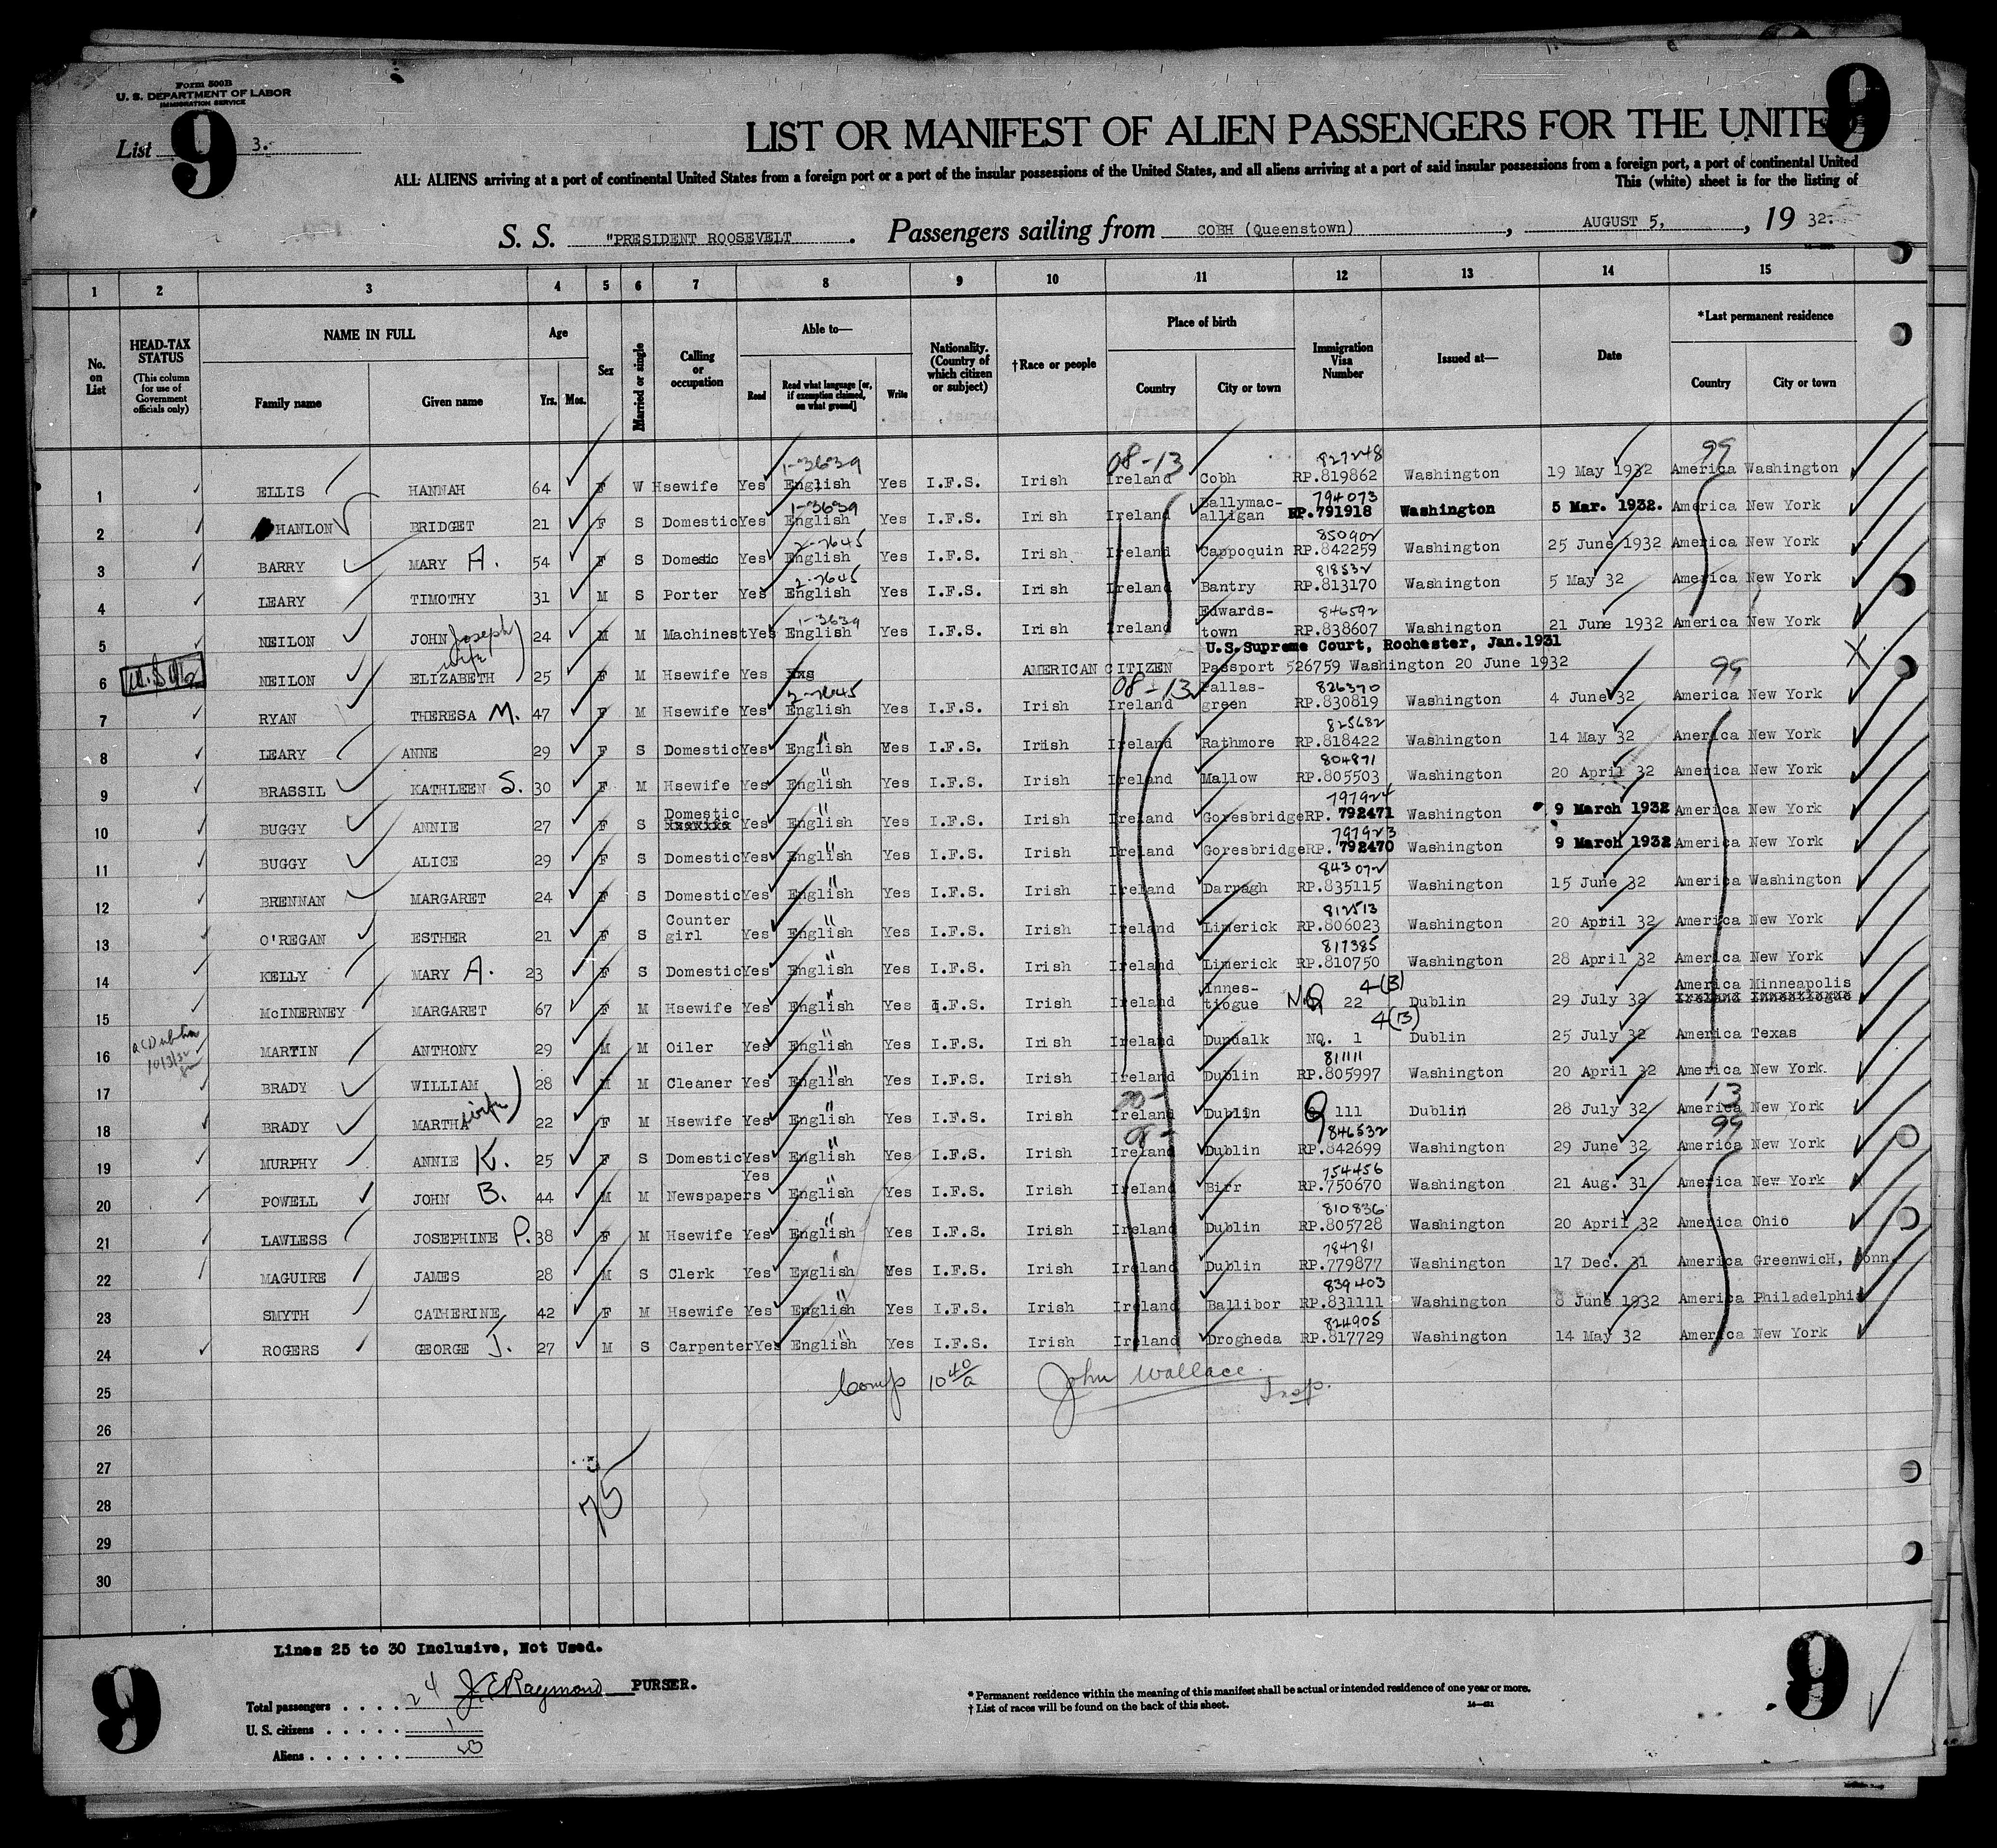 Form 500B
U. S. DEPARTMENT OF LABOR
IMMIGRATION SERVICE
9
9
List 3.
LIST OR MANIFEST OF ALIEN PASSENGERS FOR THE UNITE
ALL ALIENS arriving at a port of continental United States from a foreign port or a port of the insular possessions of the United States, and all aliens arriving at a port of said insular possessions from a foreign port, a port of continental United
This (white) sheet is for the listing of
S. S. "PRESIDENT ROOSEVELT . Passengers sailing from COBH (Queenstown) , AUGUST 5, , 19 32.
1 2 3 4 5 6 7 8 9 10 11 12 13 14 15
No. on List
HEAD-TAX STATUS (This column for use of Government officials only)
NAME IN FULL
Family name Given name
Age
Yrs. Mos.
Sex
Married or single
Calling or occupation
Able to—
Read Read what language [or, if exemption claimed, on what ground] Write
Nationality. (Country of which citizen or subject)
†Race or people
Place of birth
Country City or town
Immigration Visa Number
Issued at—
Date
*Last permanent residence
Country City or town
1-3639 08-13 827248 99
1 ELLIS HANNAH 64 F W Hsewife Yes English Yes I.F.S. Irish Ireland Cobh RP.819862 Washington 19 May 1932 America Washington
1-3639 Ballymac- 794073
2 HANLON BRIDGET 21 F S Domestic Yes English Yes I.F.S. Irish Ireland alligan RP.791918 Washington 5 Mar. 1932. America New York
2-7645 850902
3 BARRY MARY A. 54 F S Domestic Yes English Yes I.F.S. Irish Ireland Cappoquin RP.842259 Washington 25 June 1932 America New York
2-7645 818532
4 LEARY TIMOTHY 31 M S Porter Yes English Yes I.F.S. Irish Ireland Bantry RP.813170 Washington 5 May 32 America New York
1-3639 Edwards- 846592
5 NEILON JOHN Joseph 24 M M Machinest Yes English Yes I.F.S. Irish Ireland town RP.838607 Washington 21 June 1932 America New York
U.S.Supreme Court, Rochester, Jan.1931
wife
6 NEILON ELIZABETH 25 F M Hsewife Yes Yes AMERICAN CITIZEN Passport 526759 Washington 20 June 1932
2-7645 08-13 Pallas- 826370 99
7 RYAN THERESA M. 47 F M Hsewife Yes English Yes I.F.S. Irish Ireland green RP.830819 Washington 4 June 32 America New York
" 825682
8 LEARY ANNE 29 F S Domestic Yes English Yes I.F.S. Irish Ireland Rathmore RP.818422 Washington 14 May 32 America New York
" 804871
9 BRASSIL KATHLEEN S. 30 F M Hsewife Yes English Yes I.F.S. Irish Ireland Mallow RP.805503 Washington 20 April 32 America New York
Domestic " 797924
10 BUGGY ANNIE 27 F S Yes English Yes I.F.S. Irish Ireland Goresbridge RP. 792471 Washington 9 March 1932 America New York
" 797923
11 BUGGY ALICE 29 F S Domestic Yes English Yes I.F.S. Irish Ireland Goresbridge RP. 792470 Washington 9 March 1932 America New York
" 843072
12 BRENNAN MARGARET 24 F S Domestic Yes English Yes I.F.S. Irish Ireland Darragh RP.835115 Washington 15 June 32 America Washington
Counter " 812513
13 O'REGAN ESTHER 21 F S girl Yes English Yes I.F.S. Irish Ireland Limerick RP.806023 Washington 20 April 32 America New York
" 817385
14 KELLY MARY A. 23 F S Domestic Yes English Yes I.F.S. Irish Ireland Limerick RP.810750 Washington 28 April 32 America New York
" Innes- 4(B) America Minneapolis
15 McINERNEY MARGARET 67 F M Hsewife Yes English Yes I.F.S. Irish Ireland tiogue NQ 22 Dublin 29 July 32 Ireland Innestiogue
10/3/32 " 4(B)
16 MARTIN ANTHONY 29 M M Oiler Yes English Yes I.F.S. Irish Ireland Dundalk NQ. 1 Dublin 25 July 32 America Texas
" 811111
17 BRADY WILLIAM 28 M M Cleaner Yes English Yes I.F.S. Irish Ireland Dublin RP.805997 Washington 20 April 32 America New York.
wife " 13
18 BRADY MARTHA 22 F M Hsewife Yes English Yes I.F.S. Irish Ireland Dublin Q 111 Dublin 28 July 32 America New York
" 08- 846532 99
19 MURPHY ANNIE K. 25 F S Domestic Yes English Yes I.F.S. Irish Ireland Dublin RP.842699 Washington 29 June 32 America New York
Yes " 754456
20 POWELL JOHN B. 44 M M Newspapers English Yes I.F.S. Irish Ireland Birr RP.750670 Washington 21 Aug. 31 America New York
" 810836
21 LAWLESS JOSEPHINE P. 38 F M Hsewife Yes English Yes I.F.S. Irish Ireland Dublin RP.805728 Washington 20 April 32 America Ohio
" 784781
22 MAGUIRE JAMES 28 M S Clerk Yes English Yes I.F.S. Irish Ireland Dublin RP.779877 Washington 17 Dec. 31 America GreenwicH, Conn.
" 839403
23 SMYTH CATHERINE 42 F M Hsewife Yes English Yes I.F.S. Irish Ireland Ballibor RP.831111 Washington 8 June 1932 America Philadelphia
" 824905
24 ROGERS GEORGE J. 27 M S Carpenter Yes English Yes I.F.S. Irish Ireland Drogheda RP.817729 Washington 14 May 32 America New York
25 Comp 10 40/a John Wallace Insp.
26
27
28 75
29
30
Lines 25 to 30 Inclusive, Not Used.
Total passengers . . . . 24 J. E Raymond PURSER.
U. S. citizens . . . . . 1
Aliens . . . . . . 23
* Permanent residence within the meaning of this manifest shall be actual or intended residence of one year or more.
† List of races will be found on the back of this sheet.
9
9